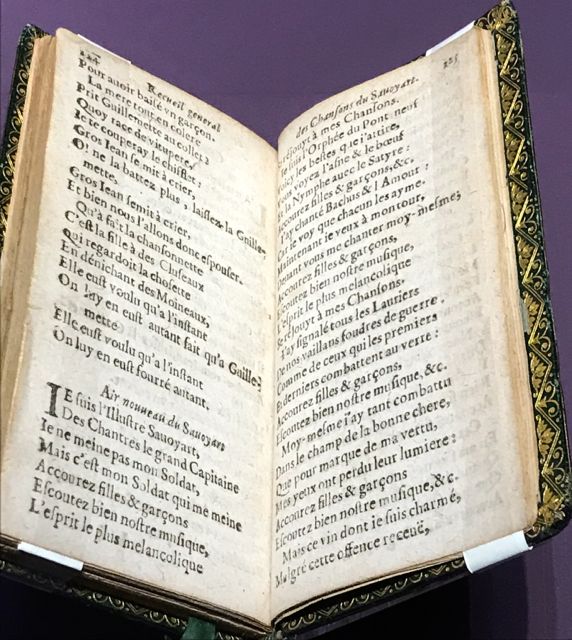 124
Recueil general
Pour auoir baisé vn garçon.
La mere tout en colere
Prit Guillemette au collet?
Quoy race de vitupere,
Ie te couperay le chifflet:
Gros Iean se mit à crier,
O! ne la battez plus, laissez la Guille-
mette.
Gros Iean se mit à crier,
Et bien nous l'allons donc espouser.
Qu'a fait la chansonnette
C'est la fille à des Cluseaux
Qui regardoit la chosette
En dénichant des Moineaux,
Elle eust voulu qu'a l'instant
On luy en eust autant fait qu'a Guille-
mette
Elle eust voulu qu'a l'instant
On luy en eust fourré autant.
Air nouueau du Sauoyars
IE suis l'Illustre Sauoyart,
Des Chantres le grand Capitaine
Ie ne meine pas mon Soldat,
Mais c'est mon Soldat qui me meine
Accourez filles & garçons
Escoutez bien nostre musique,
L'esprit le plus melancolique
des Chansons du Sauoyart. 125
réjouyt à mes Chansons.
suis l'Orphée du Pont neuf
les bestes que i'attire,
vous voyez l'asne & le bœuf
Nymphe auec le Satyre:
Accourez filles & garçons, &c.
chanté Bachus & l'Amour:
voy que chacun les ayme,
Maintenant ie veux à mon tour,
vous me chanter moy-mesme;
Accourez filles & garçons,
Escoutez bien nostre musique,
esprit le plus melancolique
réjouyt à mes Chansons.
I'ay signalé tous les Lauriers
nos vaillans foudres de guerre.
Comme de ceux qui les premiers
derniers combattent au verre:
Accourez filles & garçons,
Escoutez bien nostre musique, &c.
Moy-mesme i'ay tant combattu
Dans le champ de la bonne chere,
Que pour marque de ma vertu,
Mes yeux ont perdu leur lumiere:
Accourez filles & garçons
Escoutez bien nostre musique, &c.
Mais ce vin dont ie suis charmé,
Malgré cette offence receuë,